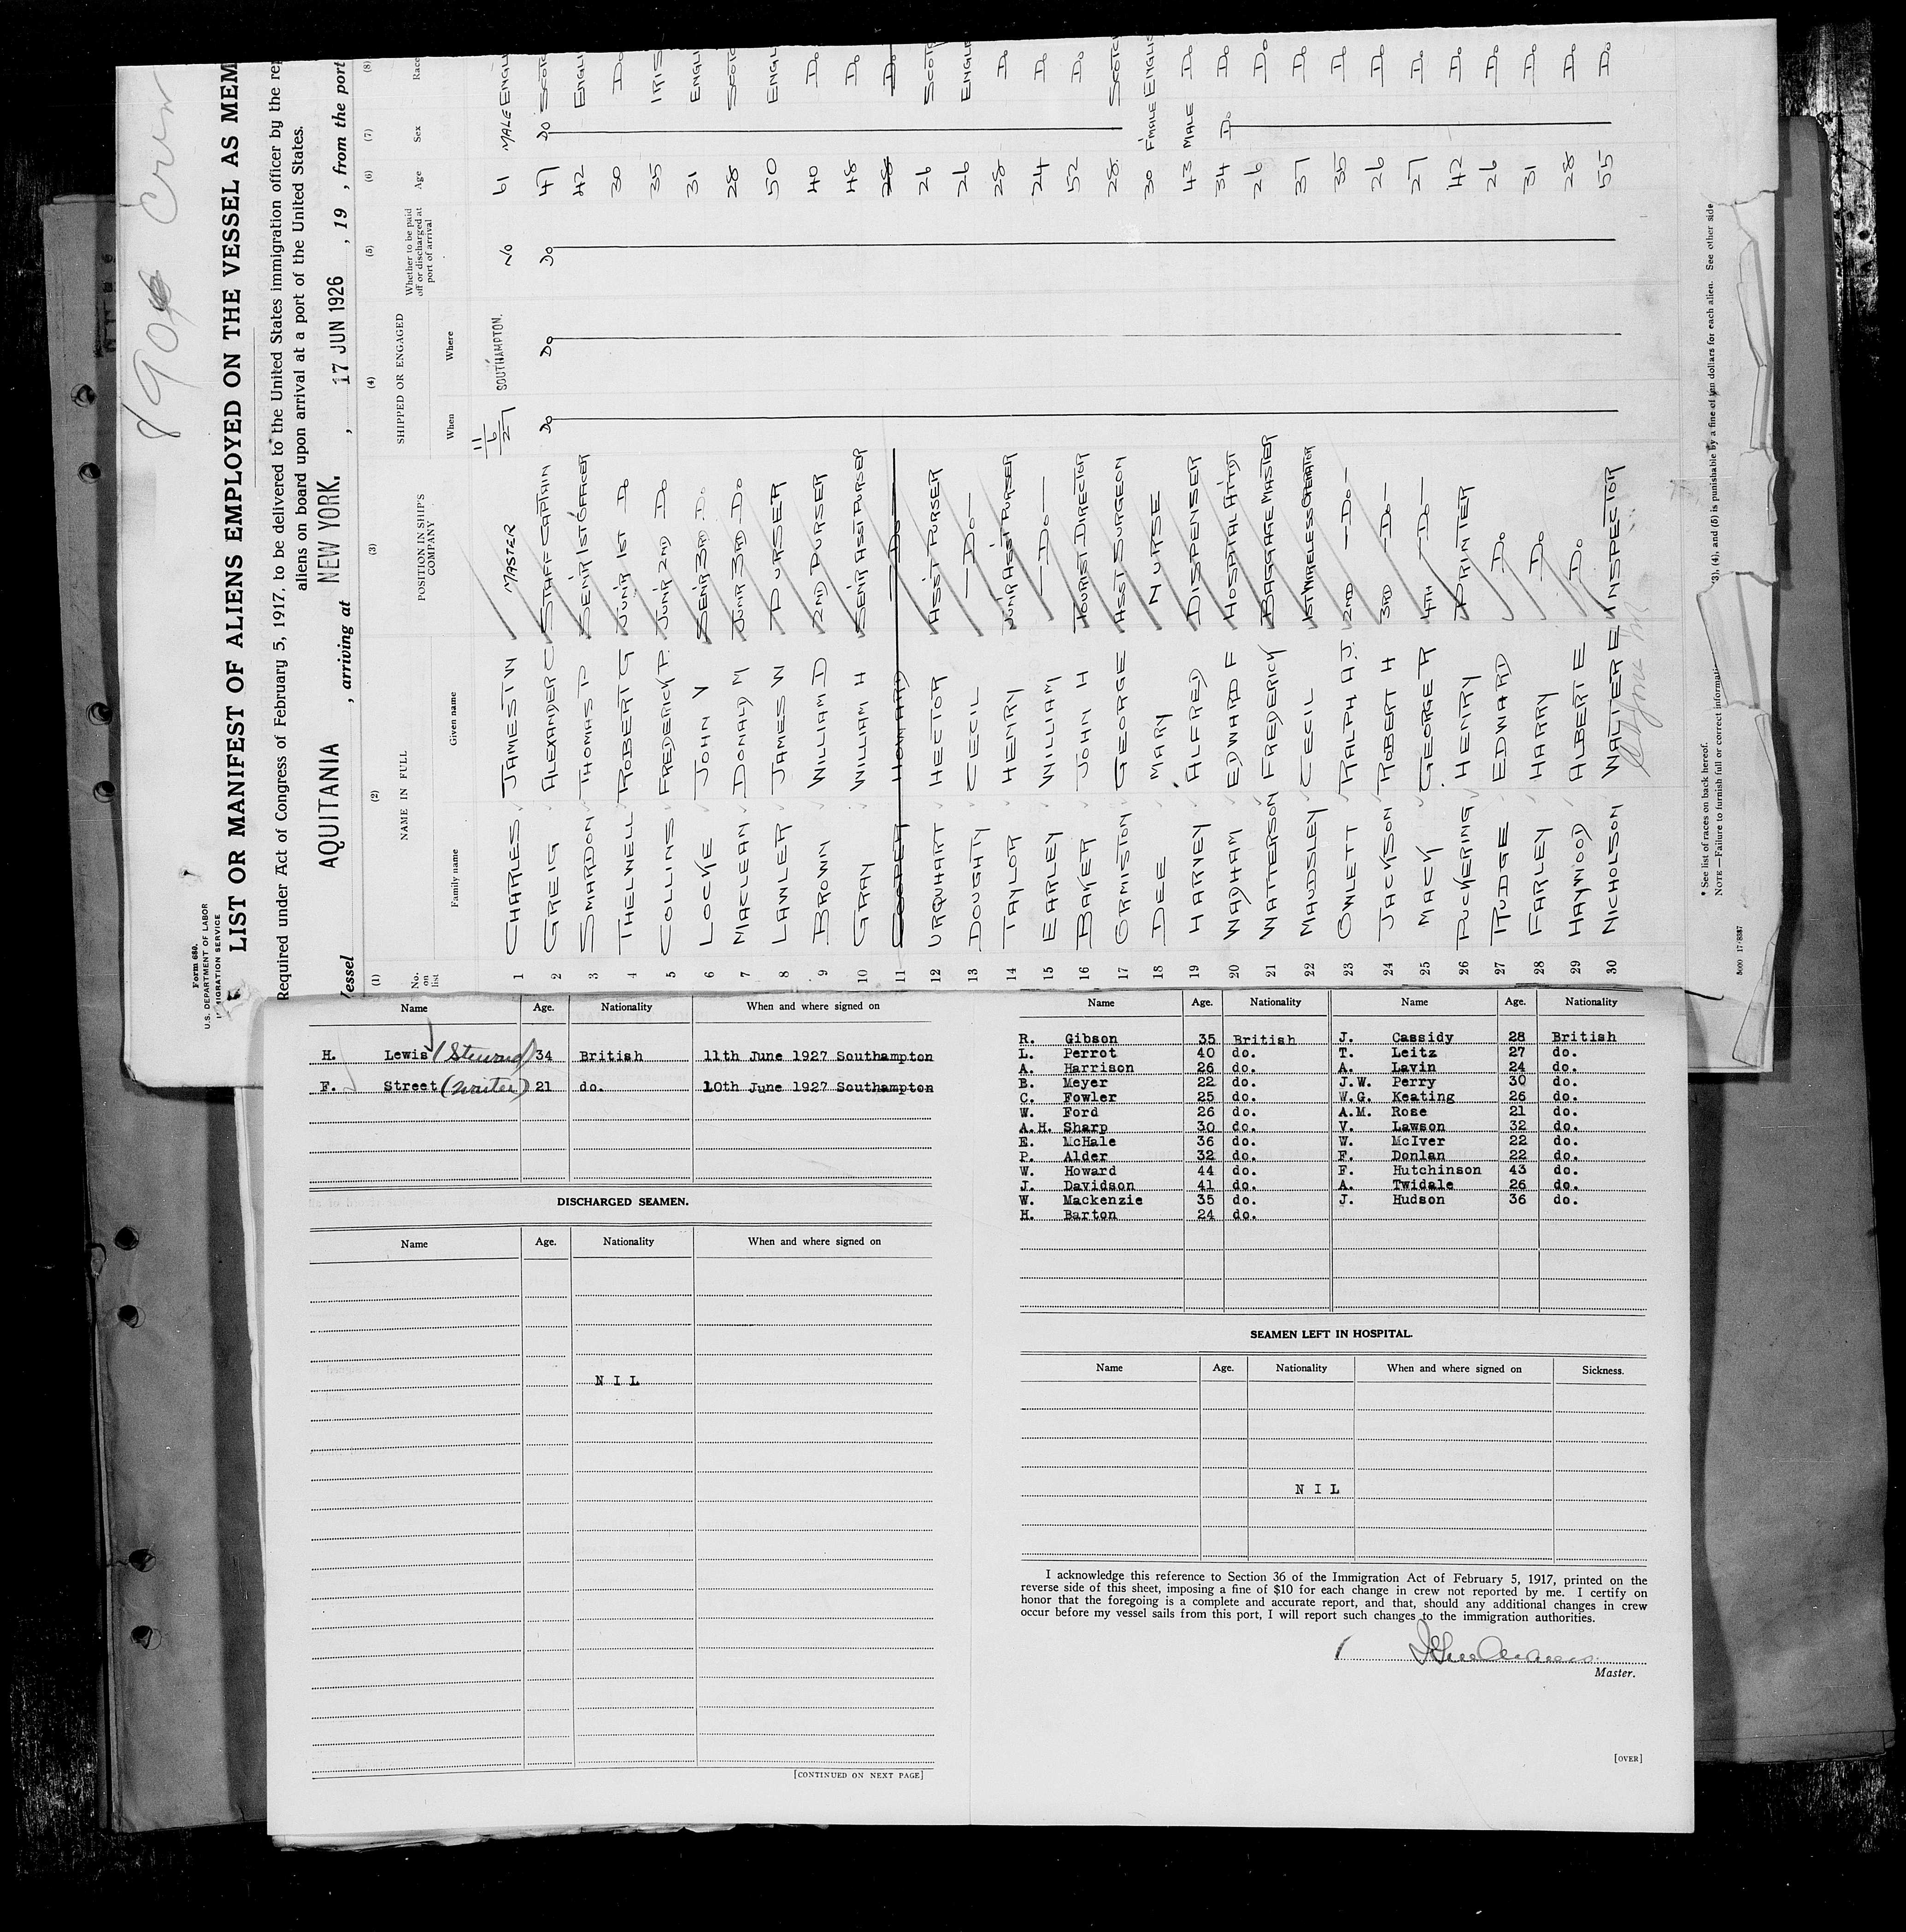 890 Crew
Form 680.
U.S. DEPARTMENT OF LABOR
IMMIGRATION SERVICE
LIST OR MANIFEST OF ALIENS EMPLOYED ON THE VESSEL AS MEM
Required under Act of Congress of February 5, 1917, to be delivered to the United States immigration officer by the rep
aliens on board upon arrival at a port of the United States.
Vessel AQUITANIA , arriving at NEW YORK. , 17 JUN 1926 , 19 , from the port
(1) (2) (3) (4) (5) (6) (7) (8)
No. on list NAME IN FULL POSITION IN SHIP'S COMPANY SHIPPED OR ENGAGED Whether to be paid off or discharged at port of arrival Age Sex Race
Family name Given name When Where
1 CHARLES JAMES T W MASTER 11/6/27 SOUTHAMPTON. NO 61 MALE ENGLI
2 GREIG ALEXANDER C STAFF CAPTAIN DO DO DO 47 DO SCOTC
3 SMARDON THOMAS P SENIR 1ST OFFICER 42 ENGLI
4 THELWELL ROBERT G JUNIR 1ST DO 30 DO
5 COLLINS FREDERICK P. JUNIR 2ND DO 35 IRIS
6 LOCKE JOHN V SENIR 3RD DO 31 ENGLI
7 MACLEAN DONALD M JUNIR 3RD DO 28 SCOTC
8 LAWLER JAMES W PURSER 50 ENGL
9 BROWN WILLIAM D 2ND PURSER 40 DO
10 GRAY WILLIAM H SENIR ASST PURSER 48 DO
11 COOPER HOWARD DO 28 DO
12 URQUHART HECTOR ASSIST PURSER 26 SCOTC
13 DOUGHTY CECIL —DO— 26 ENGLI
14 TAYLOR HENRY JUNIR ASSIST PURSER 28 DO
15 EARLEY WILLIAM —DO— 24 DO
16 BAKER JOHN H TOURIST DIRECTOR 52 DO
17 ORMISTON GEORGE ASST SURGEON 28 SCOTCH
18 DEE MARY NURSE 30 F'MALE ENGLIS
19 HARVEY ALFRED DISPENSER 43 MALE DO
20 WADHAM EDWARD F HOSPITAL ATTDT 34 DO DO
21 WATTERSON FREDERICK BAGGAGE MASTER 26 DO
22 MAUDSLEY CECIL 1ST WIRELESS OPERATOR 37 DO
23 OWLETT RALPH A.J. 2ND —DO— 35 DO
24 JACKSON ROBERT H 3RD —DO— 26 DO
25 MACK GEORGE R 4TH —DO— 27 DO
26 PUCKERING HENRY PRINTER 42 DO
27 RUDGE EDWARD DO 26 DO
28 FARLEY HARRY DO 31 DO
29 HAYWOOD ALBERT E DO 28 DO
30 NICHOLSON WALTER E INSPECTOR 55 DO
* See list of races on back hereof.
NOTE—Failure to furnish full or correct informati
(3), (4), and (6) is punishable by a fine of ten dollars for each alien. See other side
Name Age. Nationality When and where signed on
H. Lewis (Steward) 34 British 11th June 1927 Southampton
F. Street (waiter) 21 do. 10th June 1927 Southampton
DISCHARGED SEAMEN.
Name Age. Nationality When and where signed on
N I L
[CONTINUED ON NEXT PAGE]
Name Age. Nationality Name Age. Nationality
R. Gibson 35 British J. Cassidy 28 British
L. Perrot 40 do. T. Leitz 27 do.
A. Harrison 26 do. A. Lavin 24 do.
B. Meyer 22 do. J.W. Perry 30 do.
C. Fowler 25 do. W.G. Keating 26 do.
W. Ford 26 do. A.M. Rose 21 do.
A.H. Sharp 30 do. V. Lawson 32 do.
E. McHale 36 do. W. McIver 22 do.
P. Alder 32 do. F. Donlan 22 do.
W. Howard 44 do. F. Hutchinson 43 do.
J. Davidson 41 do. A. Twidale 26 do.
W. Mackenzie 35 do. J. Hudson 36 do.
H. Barton 24 do.
SEAMEN LEFT IN HOSPITAL.
Name Age. Nationality When and where signed on Sickness.
N I L
I acknowledge this reference to Section 36 of the Immigration Act of February 5, 1917, printed on the
reverse side of this sheet, imposing a fine of $10 for each change in crew not reported by me. I certify on
honor that the foregoing is a complete and accurate report, and that, should any additional changes in crew
occur before my vessel sails from this port, I will report such changes to the immigration authorities.
Master.
[OVER]